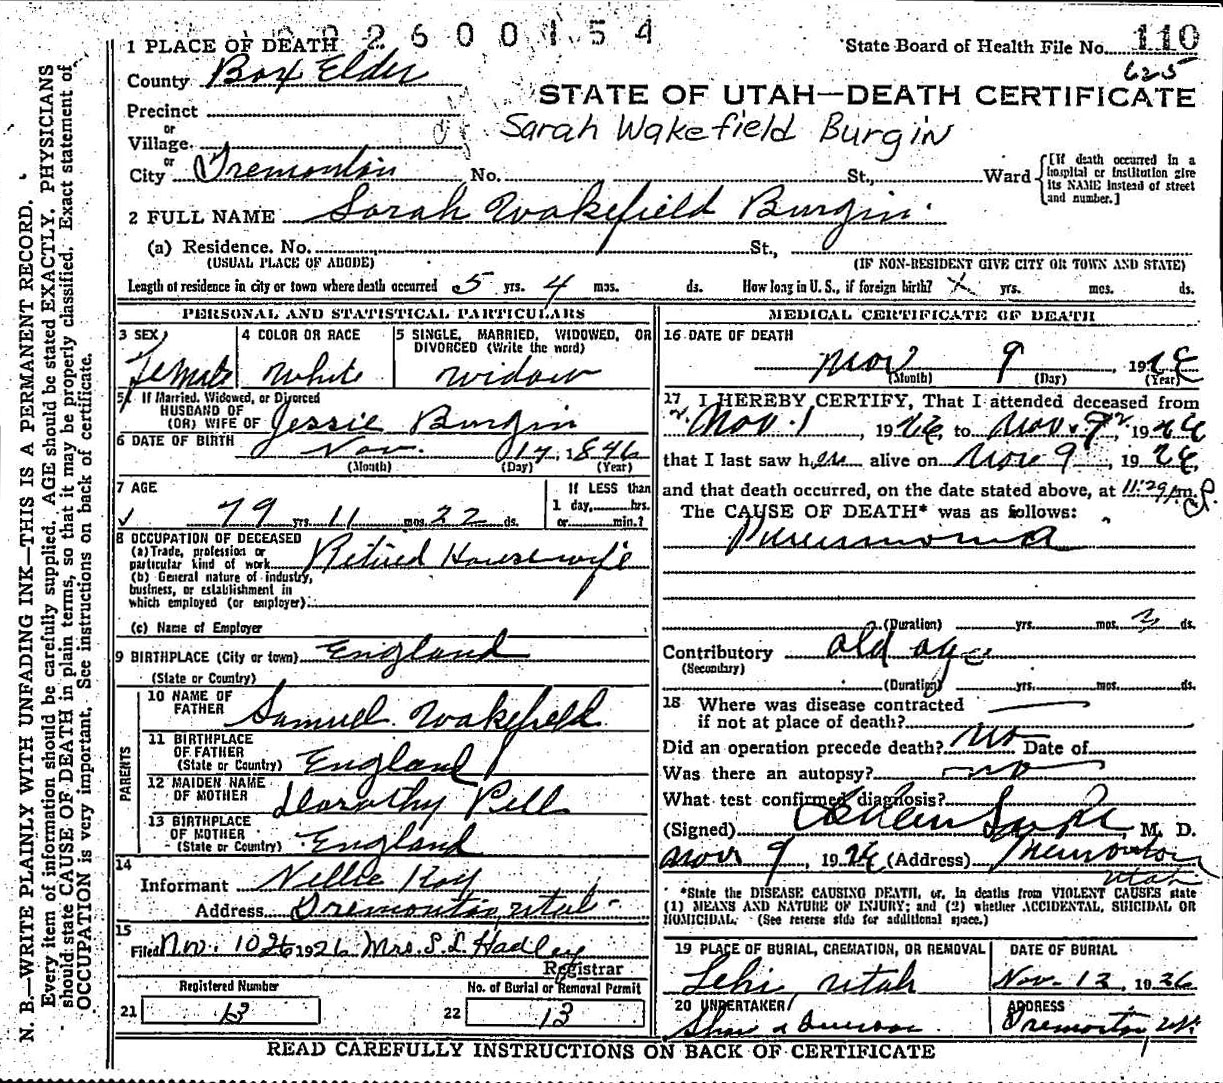 2600154
1 PLACE OF DEATH
State Board of Health File No. 110
625
County Box Elder
STATE OF UTAH—DEATH CERTIFICATE
Precinct
Sarah Wakefield Burgin
or
Village
or
City Tremonton No. St., Ward
[If death occurred in a hospital or institution give its NAME instead of street and number.]
2 FULL NAME Sarah Wakefield Burgin
(a) Residence. No. St.,
(USUAL PLACE OF ABODE) (IF NON-RESIDENT GIVE CITY OR TOWN AND STATE)
Length of residence in city or town where death occurred 5 yrs. 4 mos. ds. How long in U. S., if foreign birth? x yrs. mos. ds.
PERSONAL AND STATISTICAL PARTICULARS
3 SEX 4 COLOR OR RACE 5 SINGLE, MARRIED, WIDOWED, OR DIVORCED (Write the word)
Female White Widow
5a If Married, Widowed, or Divorced
HUSBAND OF
(OR) WIFE OF Jessie Burgin
6 DATE OF BIRTH Nov. 17, 1846
(Month) (Day) (Year)
7 AGE If LESS than
1 day, hrs.
79 yrs. 11 mos. 22 ds. or min.?
8 OCCUPATION OF DECEASED
(a) Trade, profession or
particular kind of work Retired Housewife
(b) General nature of industry,
business, or establishment in
which employed (or employer)
(c) Name of Employer
9 BIRTHPLACE (City or town) England
(State or Country)
PARENTS
10 NAME OF
FATHER Samuel Wakefield
11 BIRTHPLACE
OF FATHER
(State or Country) England
12 MAIDEN NAME
OF MOTHER Dorothy Pell
13 BIRTHPLACE
OF MOTHER
(State or Country) England
14
Informant Nellie Koy
Address Tremonton Utah
15
Filed Nov. 10 26 1926 Mrs. S. L. Hadley
Registrar
Registered Number No. of Burial or Removal Permit
21 13 22 13
MEDICAL CERTIFICATE OF DEATH
16 DATE OF DEATH
Nov 9, 1926
(Month) (Day) (Year)
17 I HEREBY CERTIFY, That I attended deceased from
Nov. 1, 1926, to Nov. 9, 1926
that I last saw her alive on Nov 9, 1926,
and that death occurred, on the date stated above, at 11:29 P m.
The CAUSE OF DEATH* was as follows:
Pneumonia
(Duration) yrs. mos. 3 ds.
Contributory old age
(Secondary)
(Duration) yrs. mos. ds.
18 Where was disease contracted
if not at place of death?
Did an operation precede death? No Date of
Was there an autopsy? no
What test confirmed diagnosis?
(Signed) M. D.
Nov 9, 1926 (Address) Tremonton
Utah
*State the DISEASE CAUSING DEATH, or, in deaths from VIOLENT CAUSES state
(1) MEANS AND NATURE OF INJURY; and (2) whether ACCIDENTAL, SUICIDAL OR
HOMICIDAL. (See reverse side for additional space.)
19 PLACE OF BURIAL, CREMATION, OR REMOVAL DATE OF BURIAL
Lehi Utah Nov. 12, 1926
20 UNDERTAKER ADDRESS
Tremonton Ut.
READ CAREFULLY INSTRUCTIONS ON BACK OF CERTIFICATE
N. B.—WRITE PLAINLY WITH UNFADING INK—THIS IS A PERMANENT RECORD.
Every item of information should be carefully supplied. AGE should be stated EXACTLY. PHYSICIANS
should state CAUSE OF DEATH in plain terms, so that it may be properly classified. Exact statement of
OCCUPATION is very important. See instructions on back of certificate.